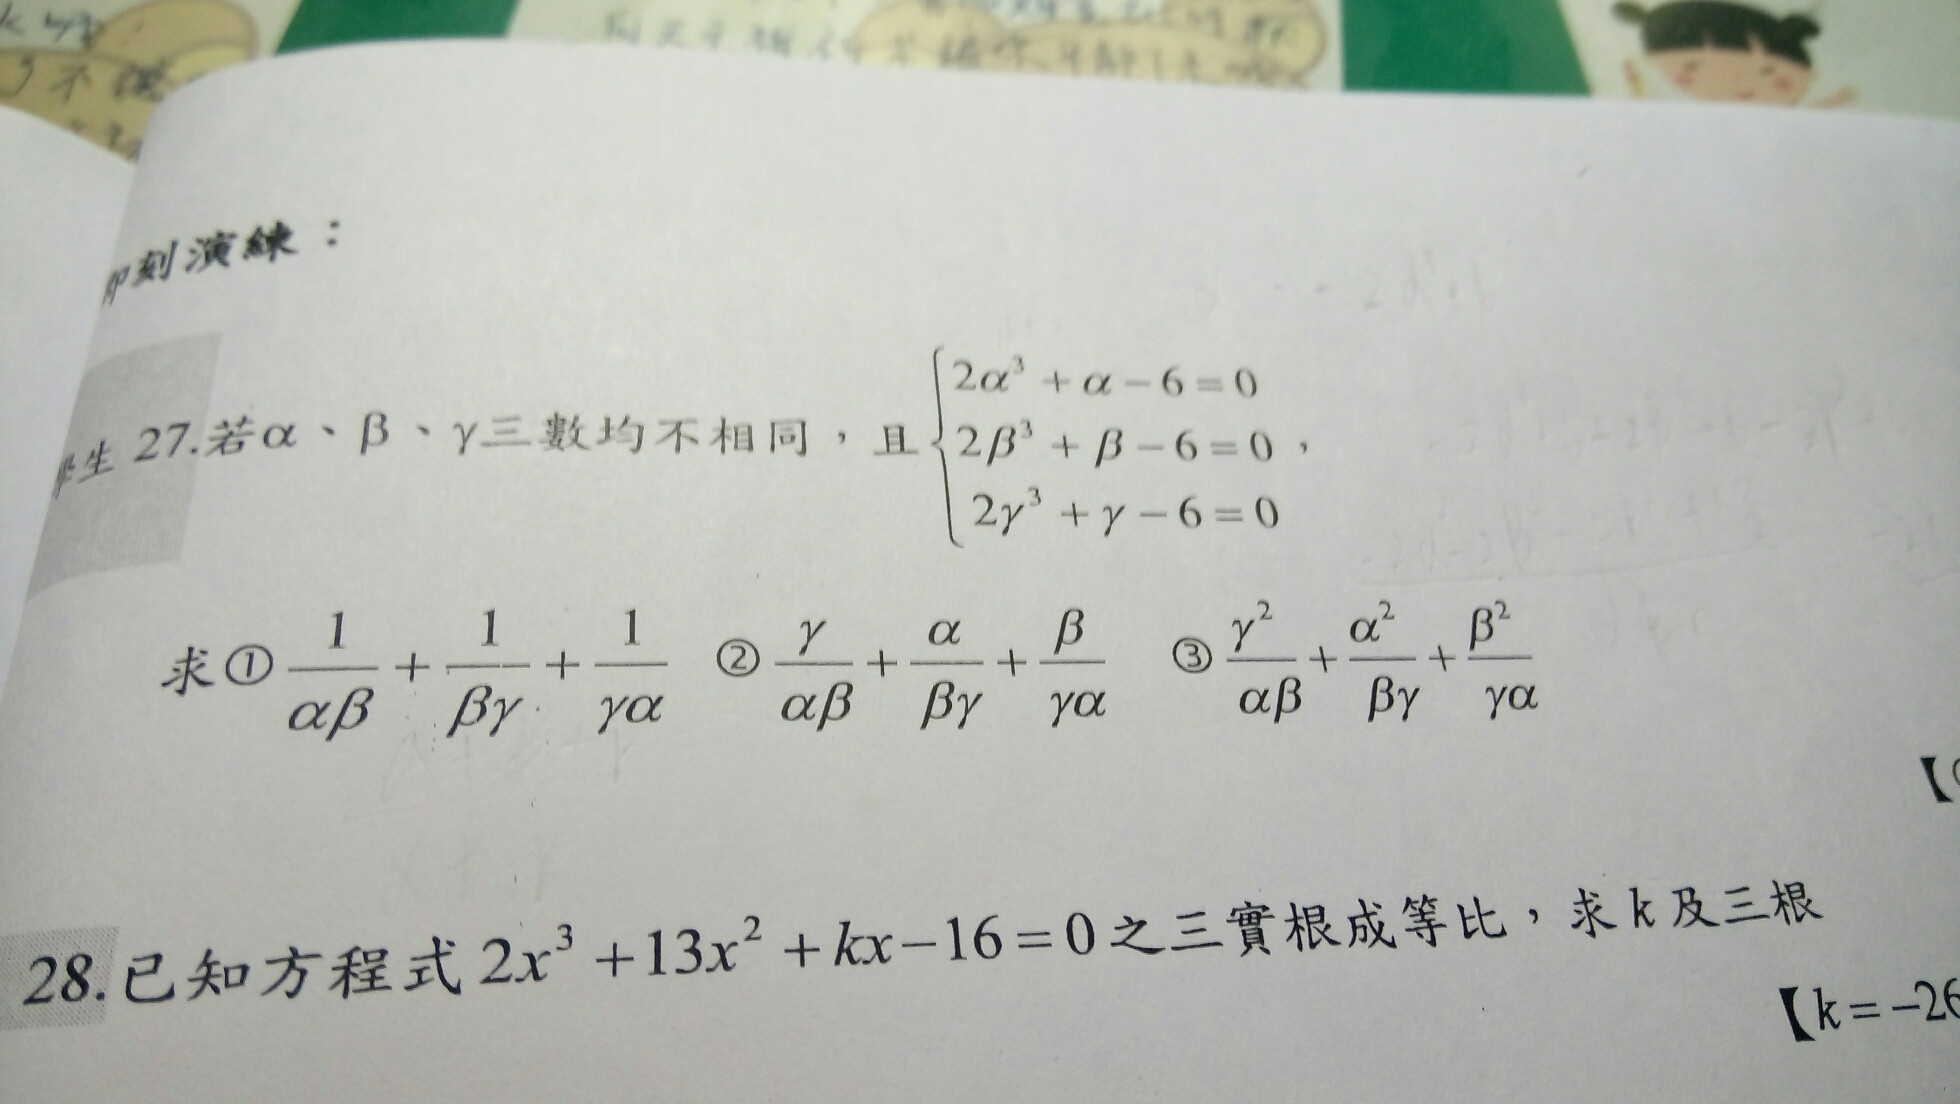 即刻演練：
學生 27.若α、β、γ三數均不相同，且{2α³+α-6=0
2β³+β-6=0，
2γ³+γ-6=0
求① 1/αβ + 1/βγ + 1/γα ② γ/αβ + α/βγ + β/γα ③ γ²/αβ + α²/βγ + β²/γα
【
28.已知方程式2x³+13x²+kx-16=0之三實根成等比，求k及三根
【k=-26